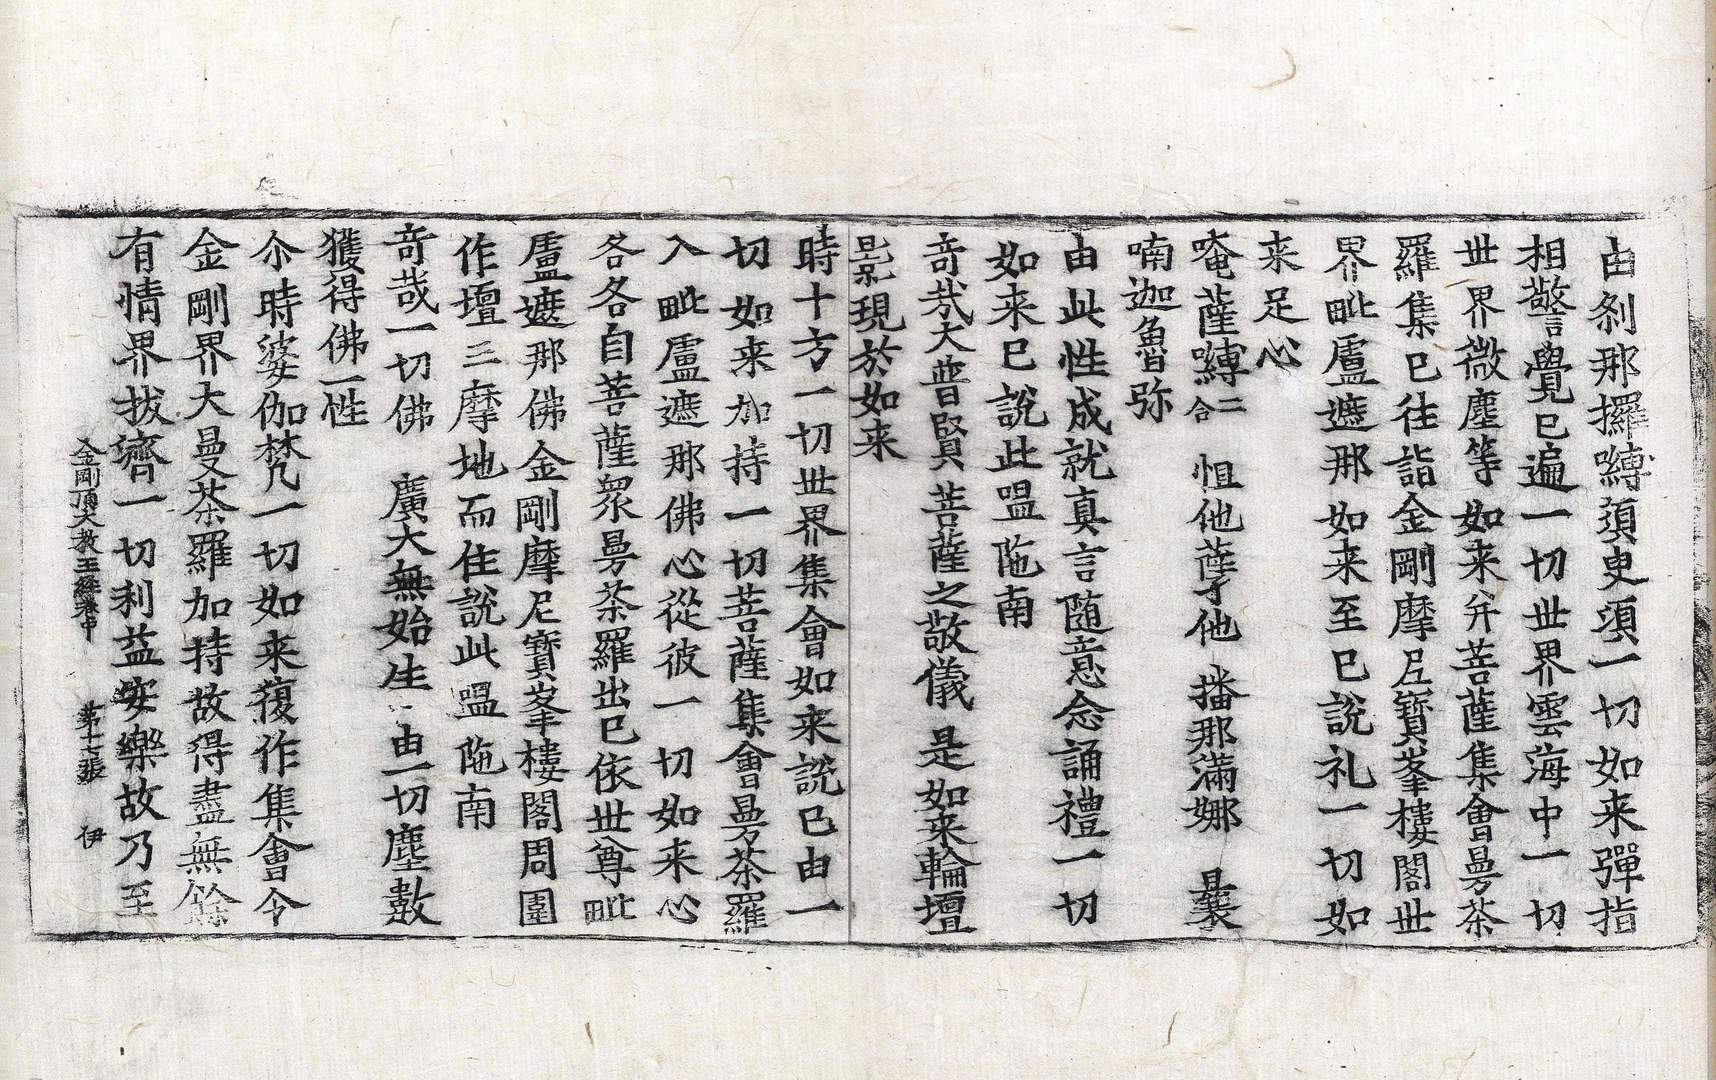 由剎那攞嚩須臾須一切如来彈指
相警覺已遍一切世界雲海中一切
世界微塵等如来并菩薩集會曼茶
羅集已往詣金剛摩尼寶峯樓閣世
界毗盧遮那如来至已說礼一切如
来足心
唵薩嚩二合 怛他蘖他 播那滿娜 曩
喃迦魯弥
由此性成就真言隨意念誦禮一切
如来已說此嗢陁南
奇㢤大普賢 菩薩之敬儀 是如来輪壇
影現於如来
時十方一切世界集會如来說已由一
切如来加持一切菩薩集會曼茶羅
入毗盧遮那佛心從彼一切如来心
各各自菩薩衆曼茶羅出已依世尊毗
盧遮那佛金剛摩尼寶峯樓閣周圍
作壇三摩地而住說此嗢陁南
奇哉一切佛 廣大無始生 由一切塵數
獲得佛一性
尒時婆伽梵一切如来復作集會令
金剛界大曼茶羅加持故得盡無餘
有情界拔濟一切利益安樂故乃至
金剛頂大教王經卷中 第十七張 伊